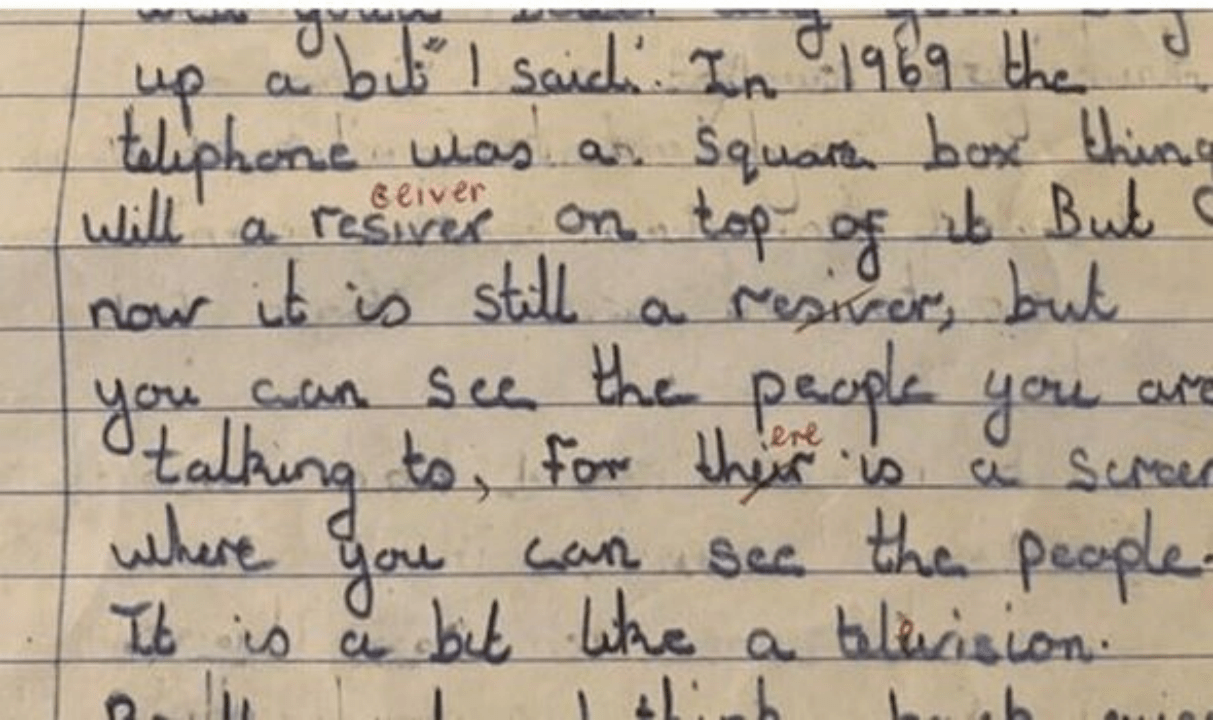 up a bit" I said. In 1969 the
teliphone was a square box thing
will a resiver on top of it But
ceiver
now it is still a resiver, but
you can see the people you are
talking to, For their is a screen
ere
where you can see the people.
It is a bit like a television.
I think